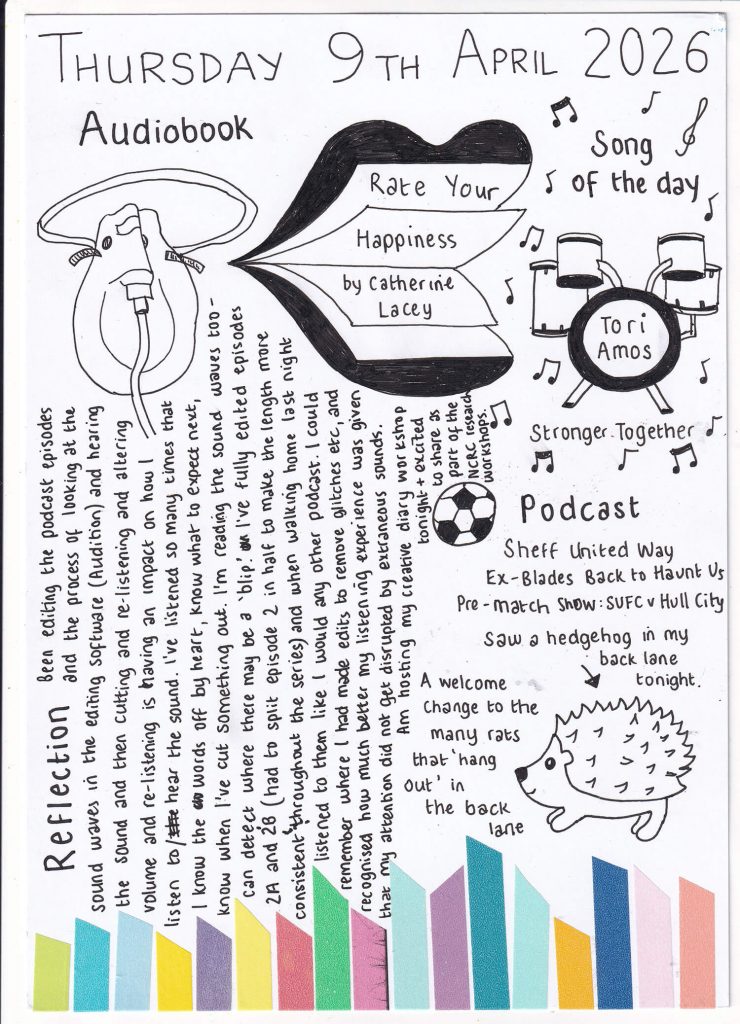 THURSDAY 9TH APRIL 2026
Audiobook
Rate Your
Happiness
by Catherine
Lacey
Song
of the day
Tori
Amos
Stronger Together
Podcast
Sheff United Way
Ex-Blades Back to Haunt Us
Pre-match Show: SUFC v Hull City
Saw a hedgehog in my
back lane
tonight.
A welcome
change to the
many rats
that 'hang
out' in
the back
lane
Reflection
Been editing the podcast episodes
and the process of looking at the
sound waves in the editing software (Audition) and hearing
the sound and then cutting and re-listening and altering
volume and re-listening is having an impact on how I
listen to/ hear the sound. I've listened so many times that
I know the words off by heart, know what to expect next,
know when I've cut something out. I'm reading the sound waves too -
can detect where there may be a 'blip.' I've fully edited episodes
2A and 2B (had to split episode 2 in half to make the length more
consistent throughout the series) and when walking home last night
listened to them like I would any other podcast. I could
remember where I had made edits to remove glitches etc, and
recognised how much better my listening experience was given
that my attention did not get disrupted by extraneous sounds.
Am hosting my creative diary workshop
tonight + excited
to share as
part of the
NCRC research
workshops.